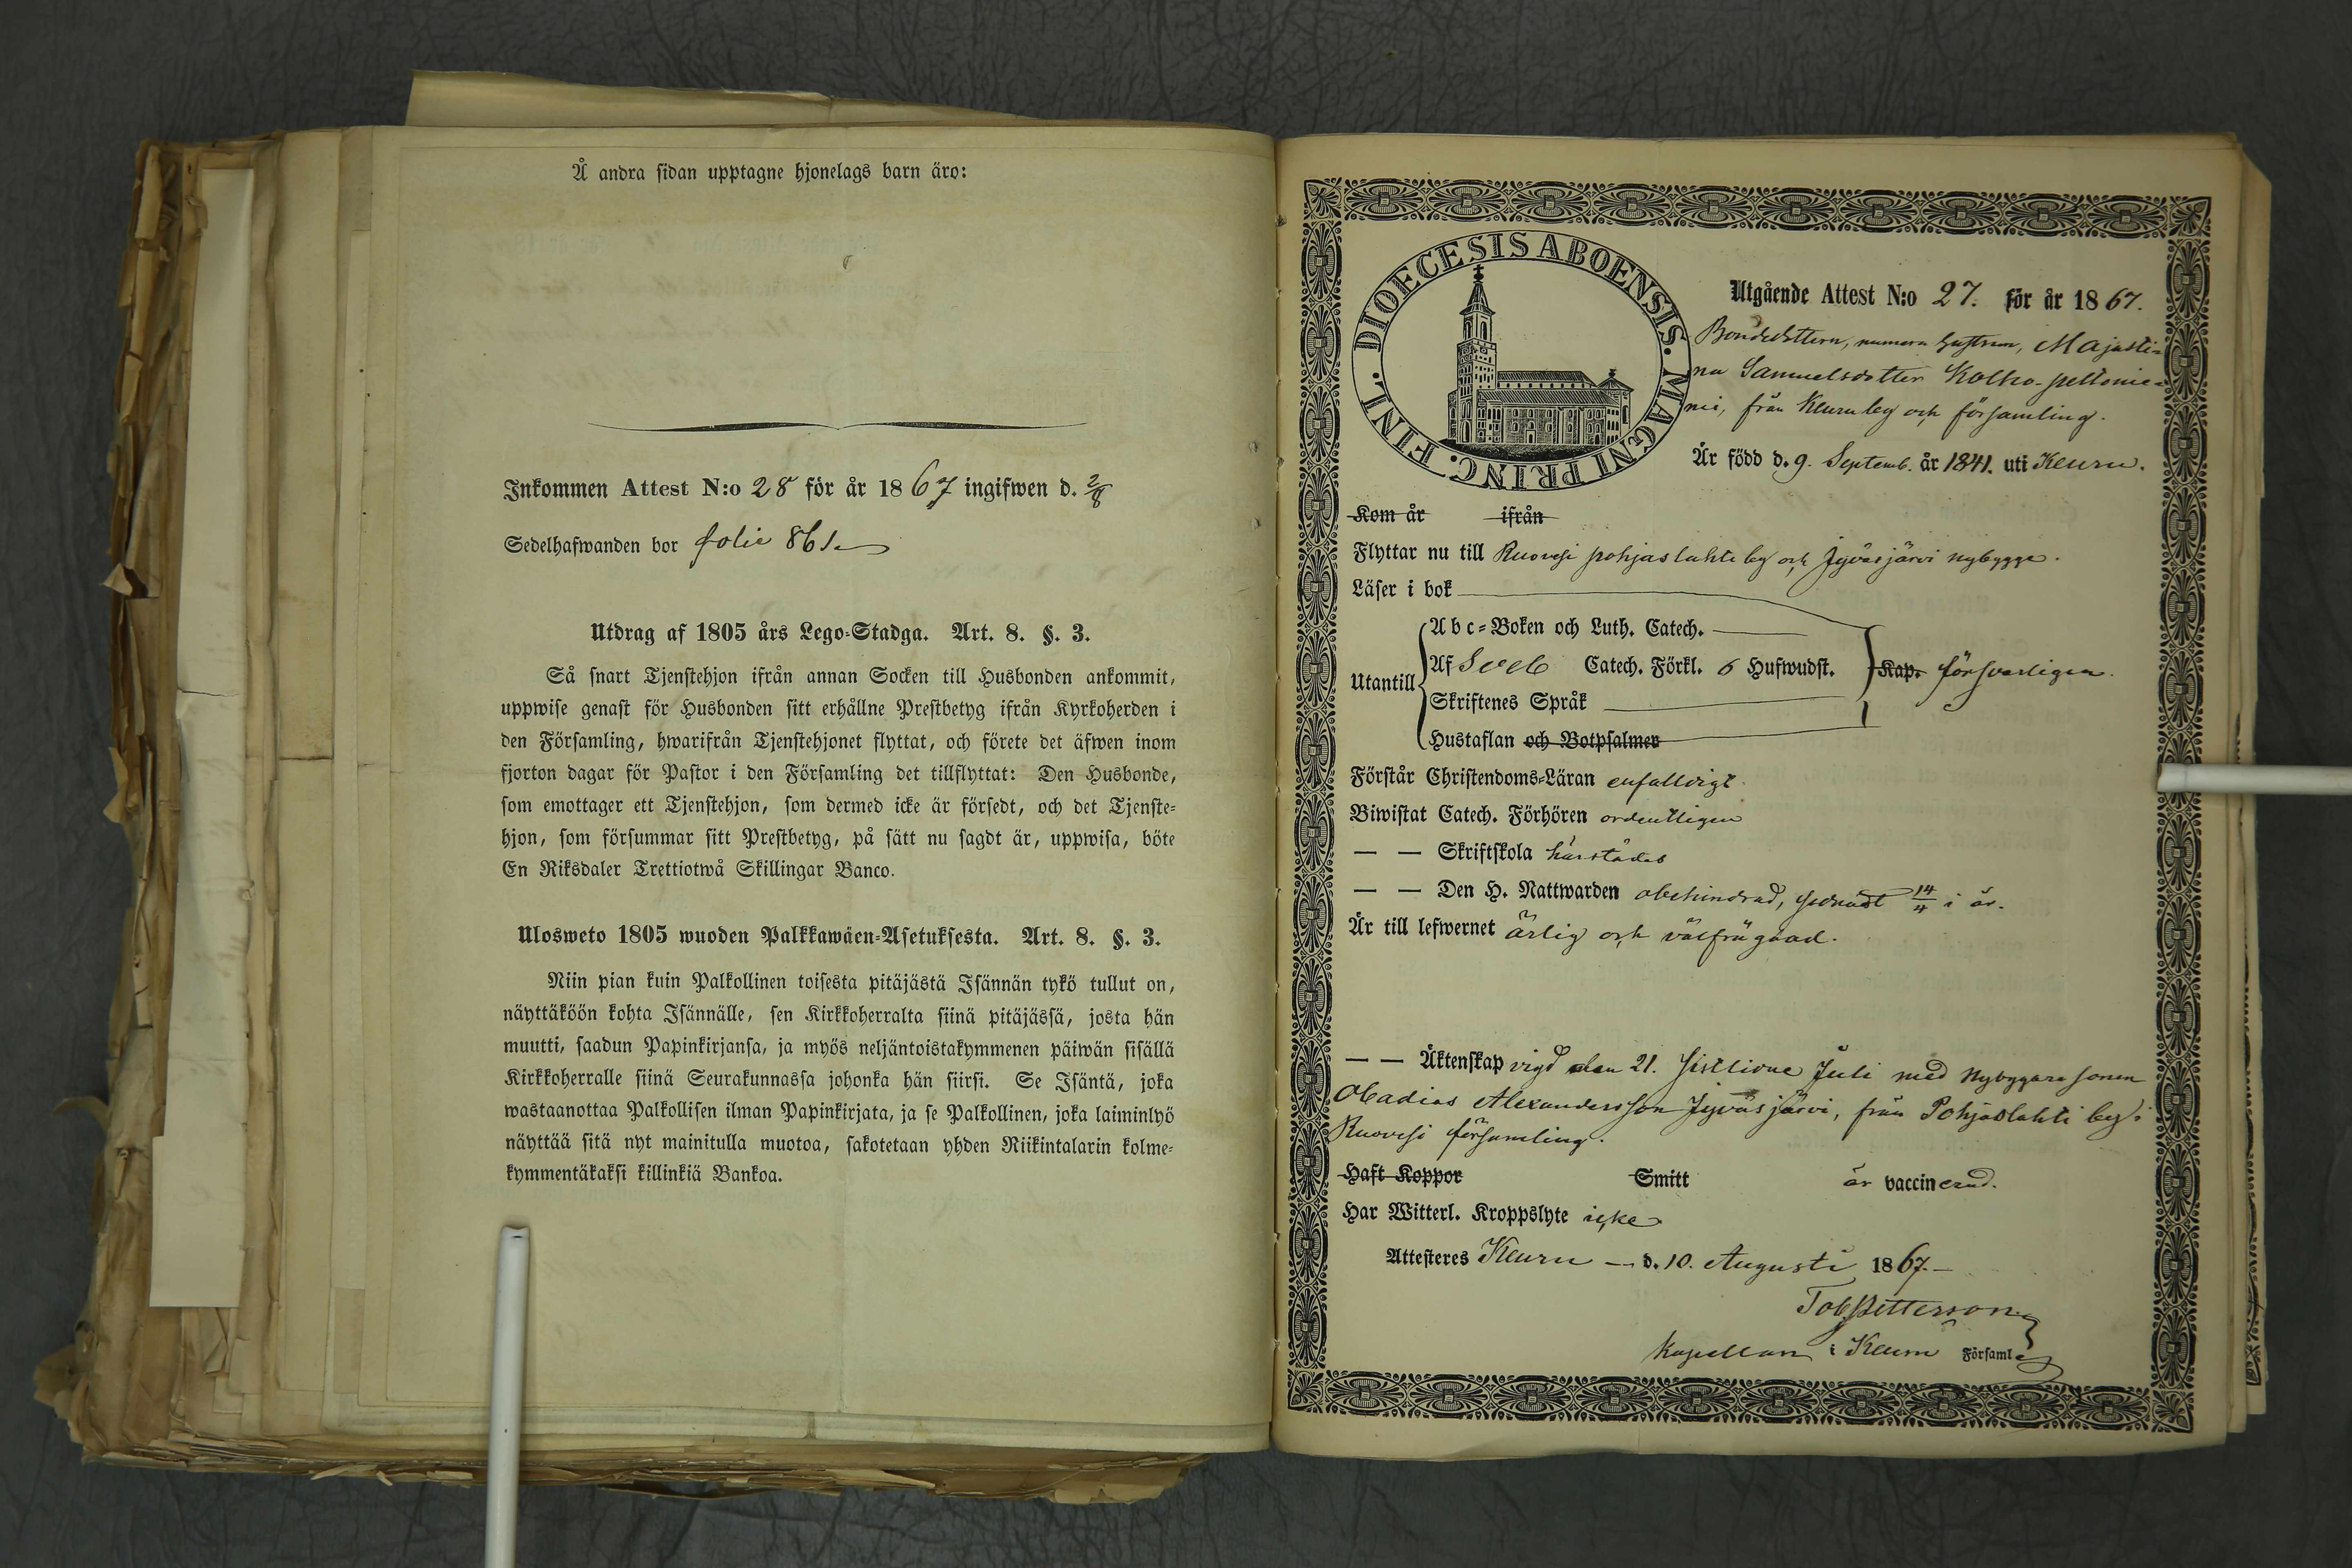 Å andra sidan upptagne hjonelags barn äro:
Inkommen Attest N:o 28 för år 1867 ingifwen d. 2/8
Sedelhafwanden bor folio 861.
Utdrag af 1805 års Lego-Stadga. Art. 8. §. 3.
Så snart Tjenstehjon ifrån annan Socken till Husbonden ankommit,
uppwise genast för Husbonden sitt erhållne Prestbetyg ifrån Kyrkoherden i
den Församling, hwarifrån Tjenstehjonet flyttat, och förete det äfwen inom
fjorton dagar för Pastor i den Församling det tillflyttat: Den Husbonde,
som emottager ett Tjenstehjon, som dermed icke är försedt, och det Tjenste-
hjon, som försummar sitt Prestbetyg, på sätt nu sagdt är, uppwisa, böte
En Riksdaler Trettiotwå Skillingar Banco.
Ulosweto 1805 wuoden Palkkawäen-Asetuksesta. Art. 8. §. 3.
Niin pian kuin Palkollinen toisesta pitäjästä Isännän tykö tullut on,
näyttäköön kohta Isännälle, sen Kirkkoherralta siinä pitäjässä, josta hän
muutti, saadun Papinkirjansa, ja myös neljäntoistakymmenen päiwän sisällä
Kirkkoherralle siinä Seurakunnassa johonka hän siirsi. Se Isäntä, joka
wastaanottaa Palkollisen ilman Papinkirjata, ja se Palkollinen, joka laiminlyö
näyttää sitä nyt mainitulla muotoa, sakotetaan yhden Riikintalarin kolme-
kymmentäkaksi killinkiä Bankoa.
DIOECESIS ABOENSIS. MAGNI PRINC. FINL.
Utgående Attest N:o 27. för år 1867.
Bondedottern, numera hustrun, Majasti-
na Samuelsdotter Kolho-peltonie-
mi, från Keuru by och församling.
Är född d. 9. Septemb. år 1841. uti Keuru.
Kom år ifrån
Flyttar nu till Ruovesi pohjaslahti by och Jyväsjärvi nybygge.
Läser i bok
Abc-Boken och Luth. Catech.
Utantill Af Sveb Catech. Förkl. 6 Hufwudst. Kap. försvarligen.
Skriftenes Språk
Hustaflan och Botpsalmer
Förstår Christendoms-Läran enfaldigt.
Biwistat Catech. Förhören ordentligen
— — Skriftskola härstädes
— — Den H. Nattwarden obehindrad, senast 14/4 i år.
Är till lefwernet ärlig och välfrägdad.
— — Äktenskap vigd den 21. sistlidne Juli med Nybyggaresonen
Obadias Alexandersson Jyväsjärvi, från Pohjaslahti by i
Ruovesi församling.
Haft Koppor Smitt är vaccinerad.
Har Witterl. Kroppslyte icke
Attesteres Keuru — d. 10. Augusti 1867.—
Tob. Petterson
Kapellan i Keuru Församl.